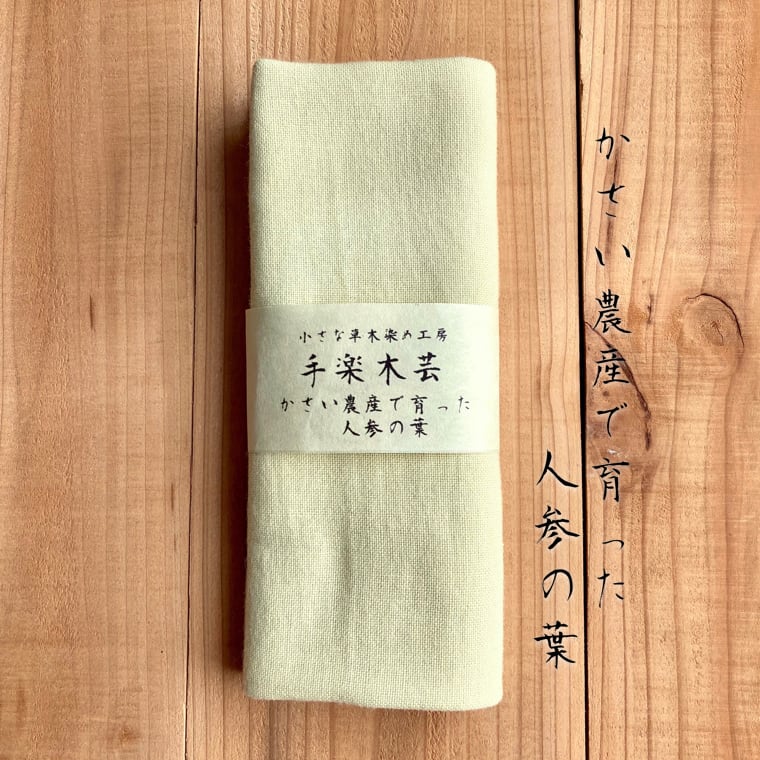 小さな草木染め工房
手楽木芸
かさい農産で育った
人参の葉
かさい農産で育った
人参の葉